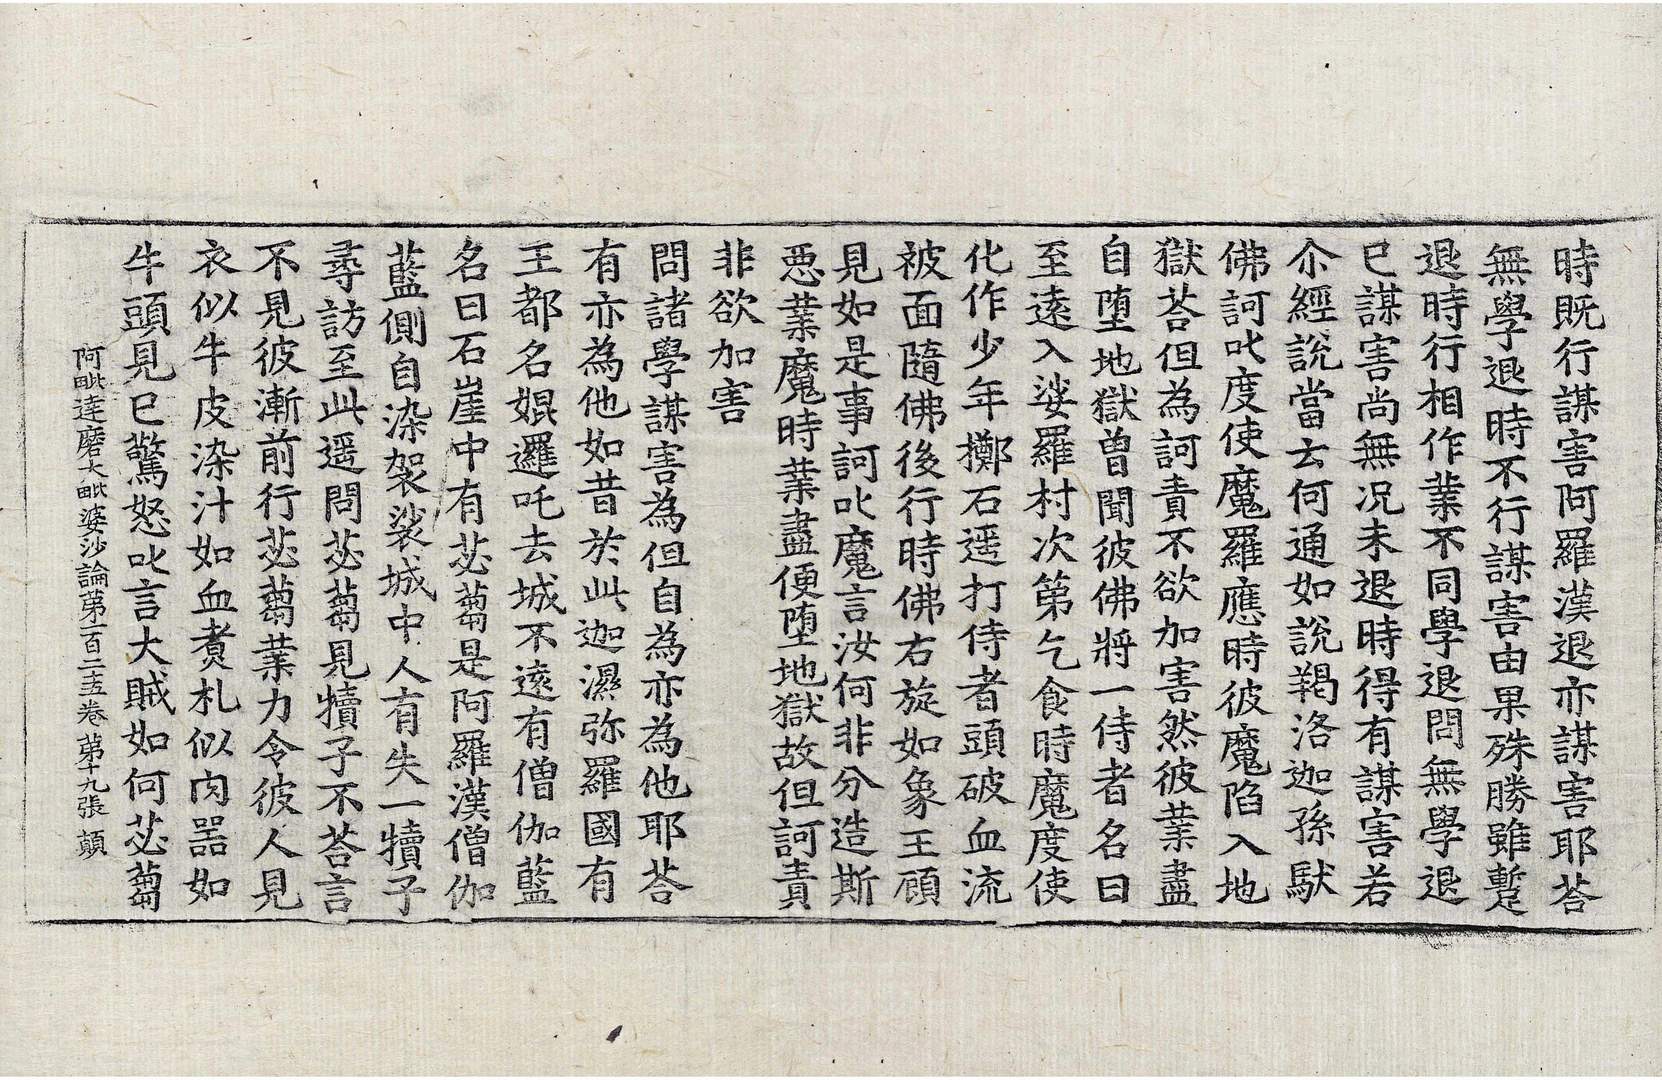 時既行謀害阿羅漢退亦謀害耶荅
無學退時不行謀害由果殊勝雖蹔
退時行相作業不同學退問無學退
已謀害尚無况未退時得有謀害若
尒經說當云何通如說羯洛迦孫馱
佛訶叱度使魔羅應時彼魔陷入地
獄荅但為訶責不欲加害然彼業盡
自墮地獄曾聞彼佛將一侍者名曰
至遠入娑羅村次第乞食時魔度使
化作少年擲石遥打侍者頭破血流
被面隨佛後行時佛右旋如象王顧
見如是事訶叱魔言汝何非分造斯
惡業魔時業盡便墮地獄故但訶責
非欲加害
問諸學謀害為但自為亦為他耶荅
有亦為他如昔於此迦濕弥羅國有
王都名媲邏吒去城不遠有僧伽藍
名曰石崖中有苾蒭是阿羅漢僧伽
藍側自染袈裟城中人有失一犢子
尋訪至此遥問苾蒭見犢子不荅言
不見彼漸前行苾蒭業力令彼人見
衣似牛皮染汁如血煑札似肉器如
牛頭見已驚怒叱言大賊如何苾蒭
阿毗達磨大毗婆沙論第一百二十五卷 第十九張 顛